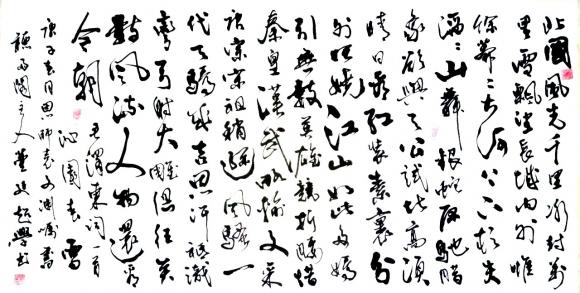 北國風光千里冰封萬
里雪飄望長城内外惟
餘莽莽大河上下頓失
滔滔山舞銀蛇原馳臘
象欲與天公試比高須
晴日看紅裝素裹分
外妖嬈江山如此多嬌
引無數英雄競折腰惜
秦皇漢武略輸文采
唐宗宋祖稍遜風騷一
代天驕成吉思汗祗識
彎弓射大雕俱往矣
數風流人物還看
今朝 毛澤東詞一首
沁園春 雪
庚子春月恩師 文淵囑書
聽雨閣主人董 超學書